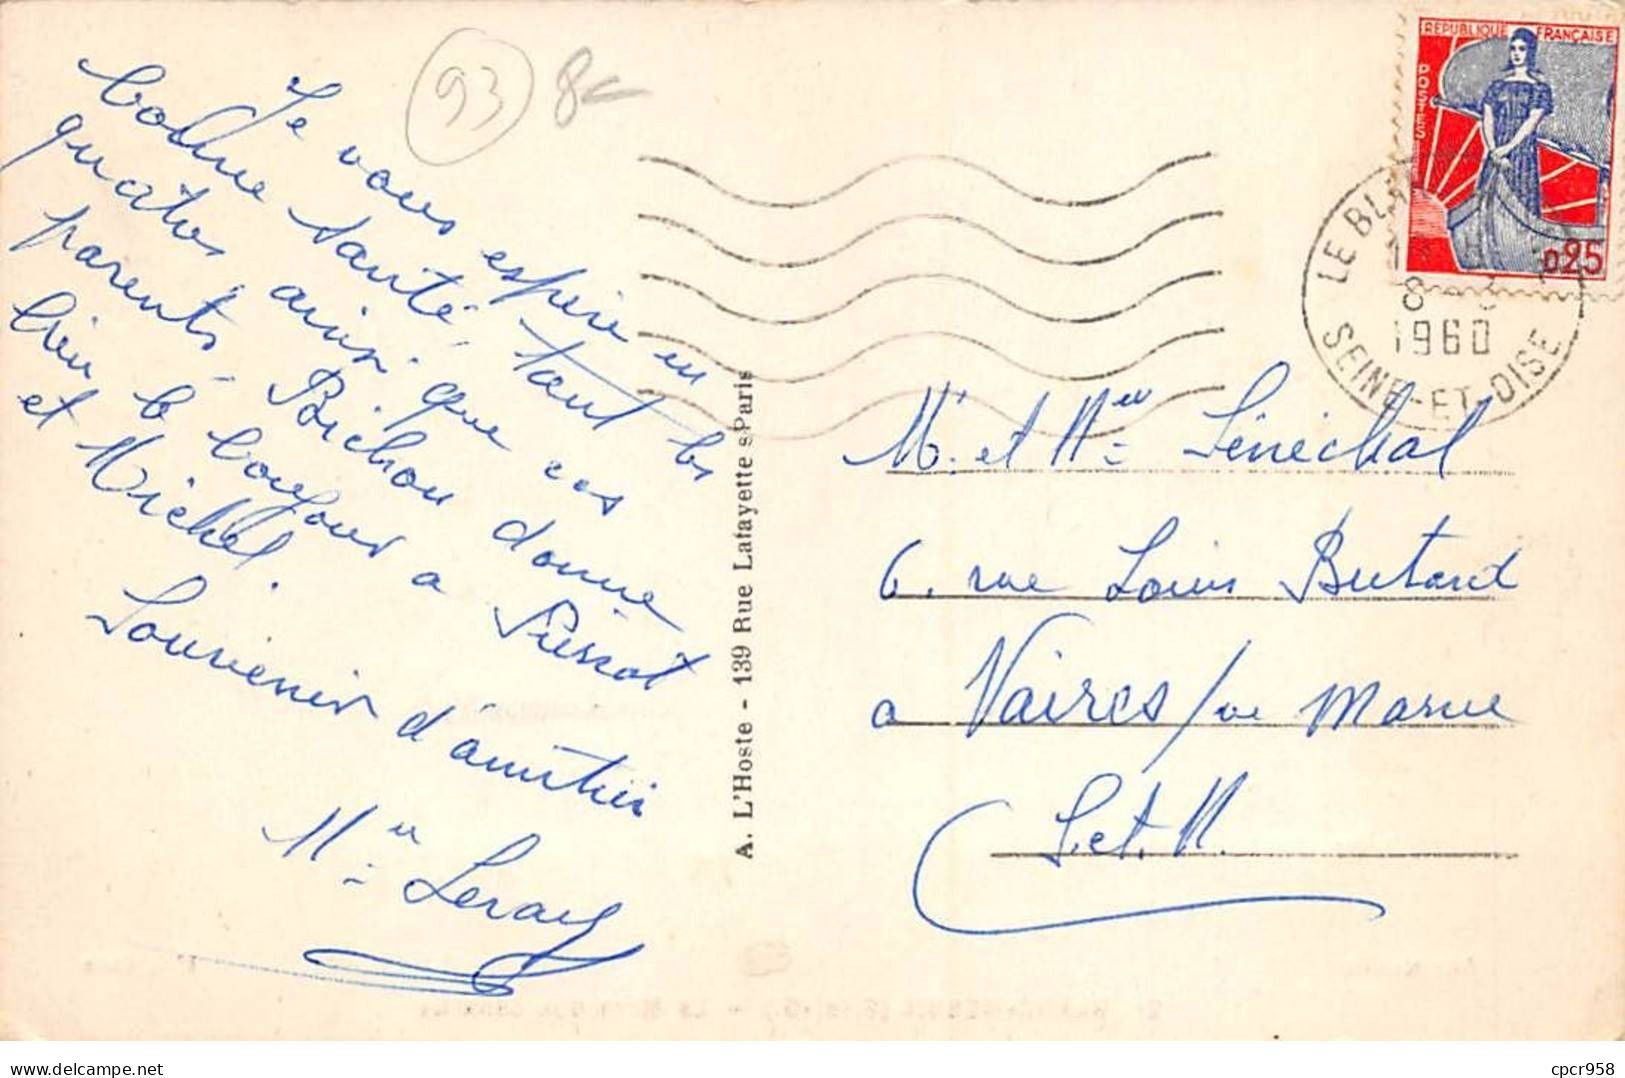 93
8
Je vous espère en
bonne santé, tout les
quatres ainsi que ces
parents, Bichou donne
bien le bonjour a Pierrot
et Michel.
Souvenir d'amitiés
Mme Leray
A. L'Hoste - 139 Rue Lafayette - Paris
REPUBLIQUE FRANÇAISE
POSTES
0,25
LE BLA
8
1960
SEINE-ET-OISE
Mr et Mme Sénéchal
6. rue Louis Butard
a Vaires / sur Marne
S. et. M.
cpcr958